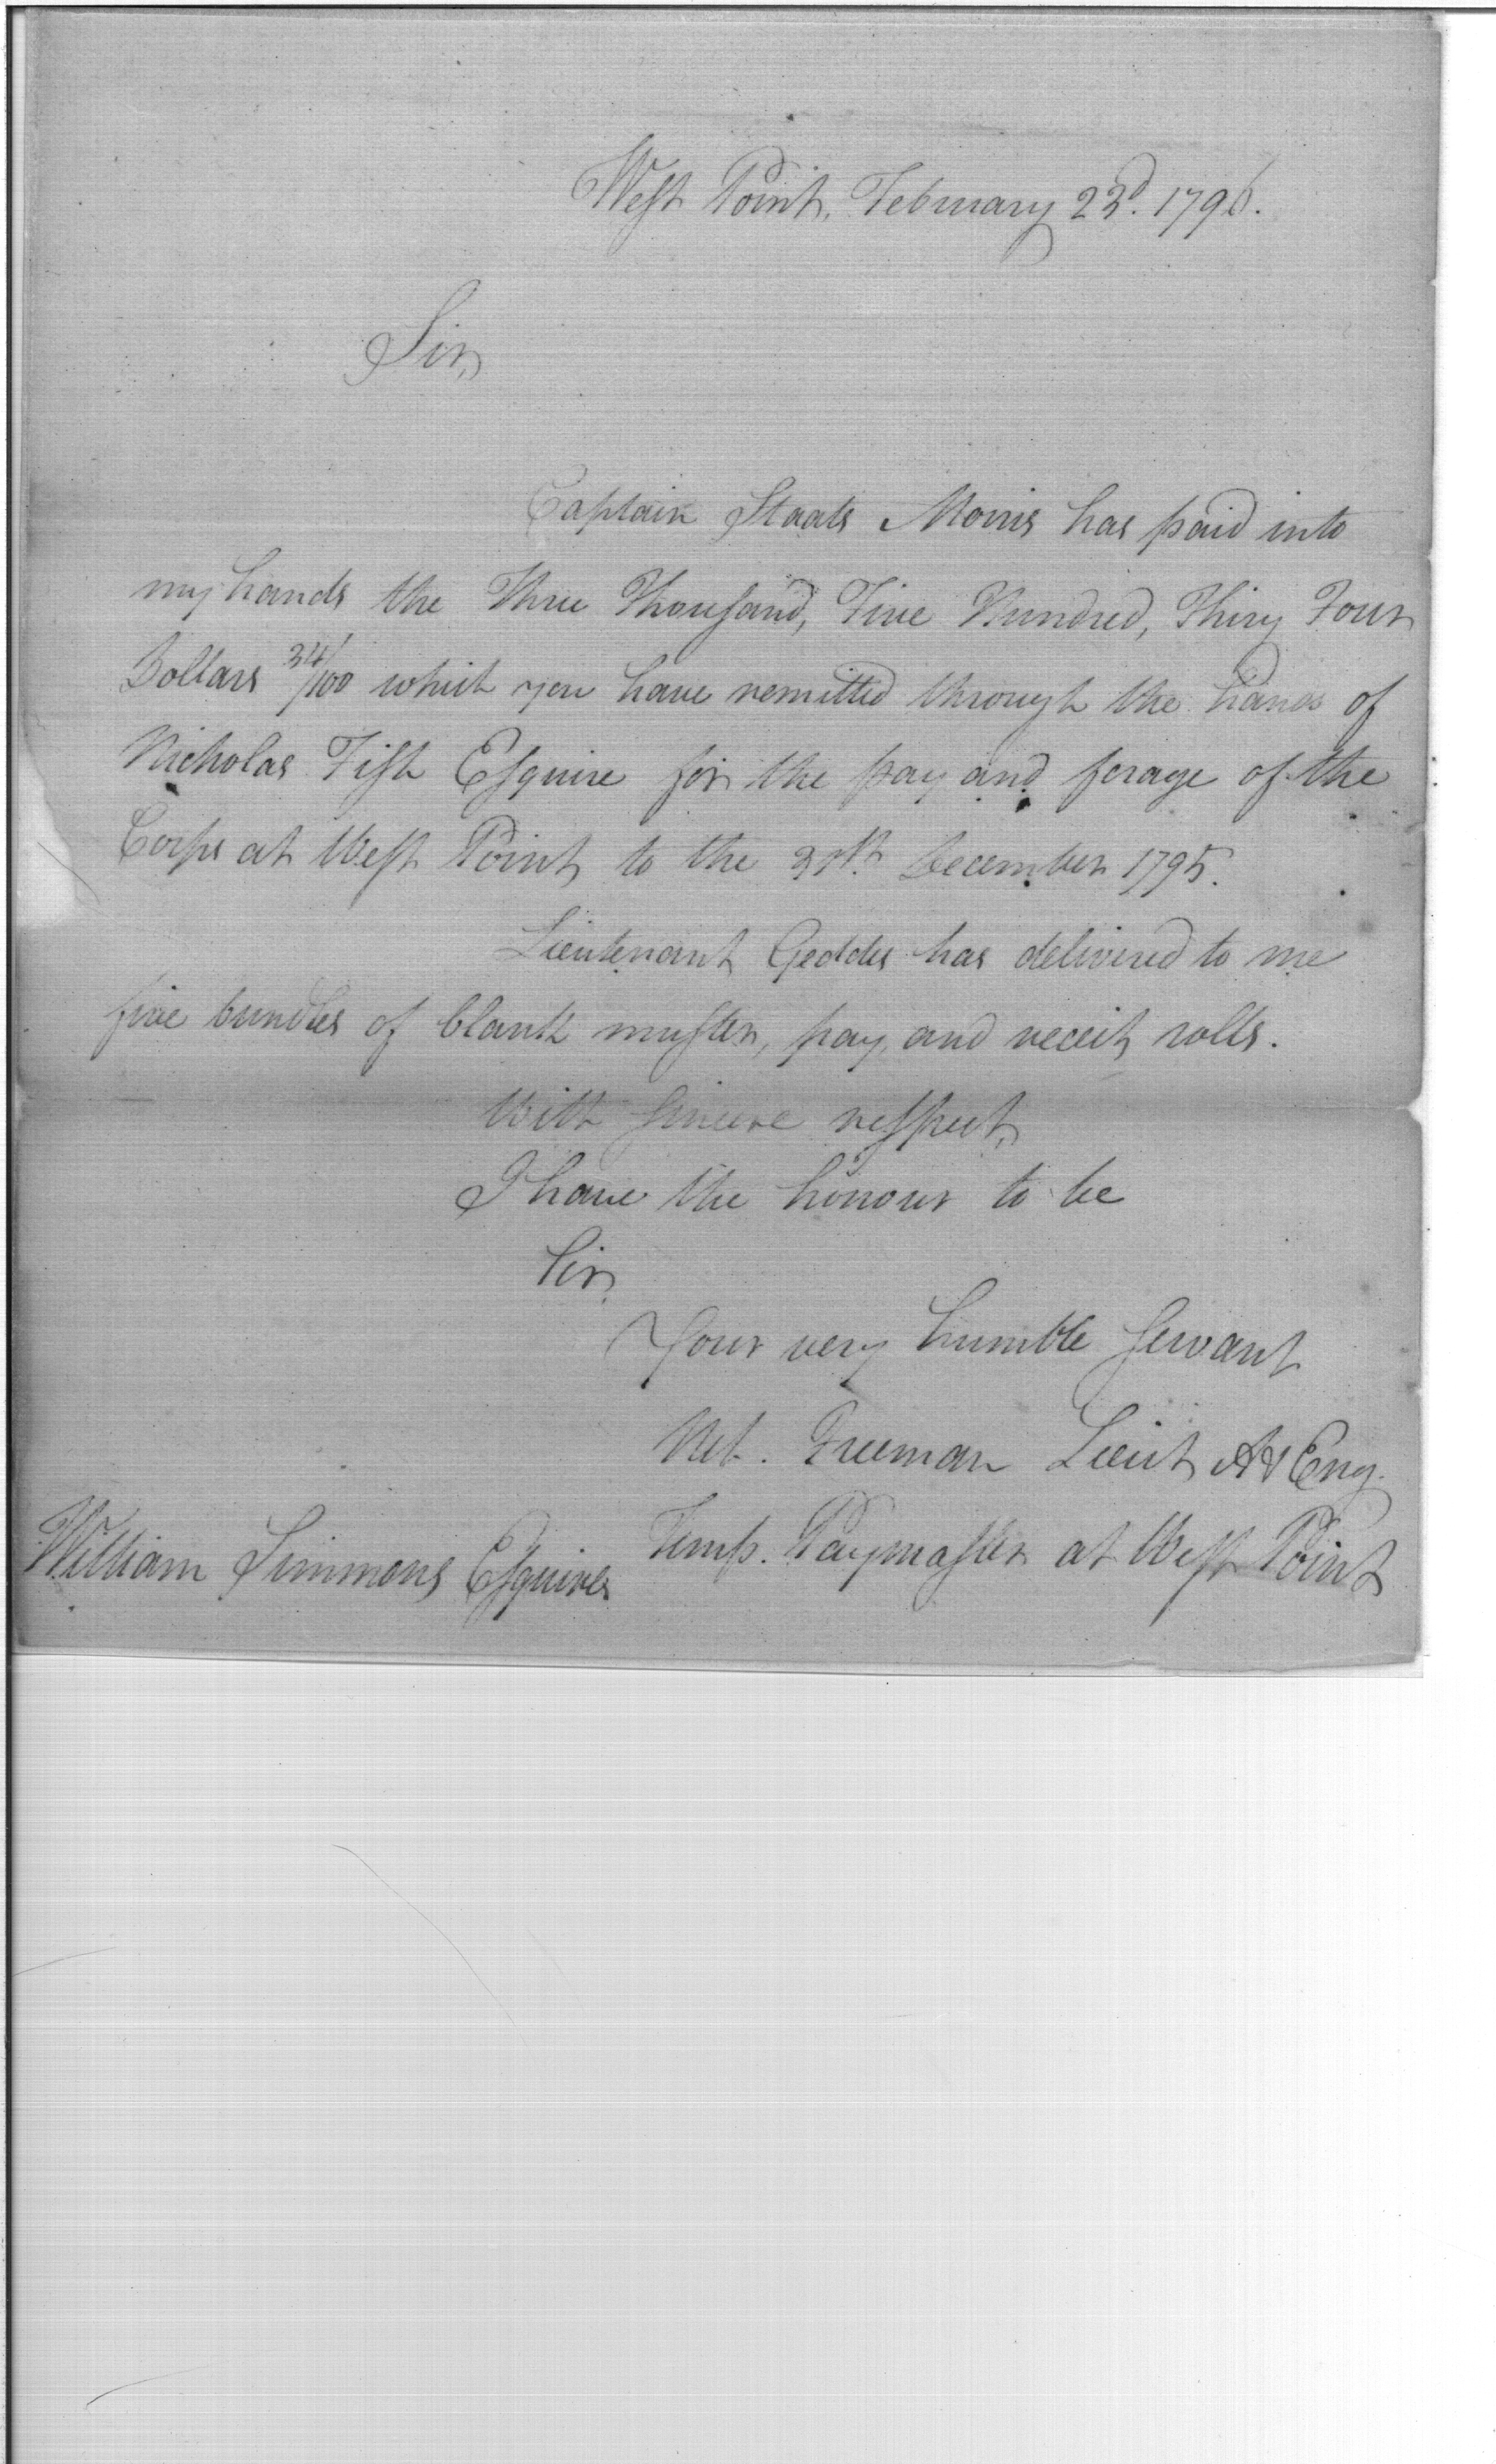 West Point, February 23d. 1796.
Sir,
Captain Staats Morris has paid into
my hands the Three Thousand, Five Hundred, Thiry Four
Dollars 34/100 which you have remitted through the hands of
Nicholas Fish Esquire for the pay and forage of the
Corps at West Point to the 31st. December 1795.
Lieutenant Geddes has delivered to me
five bundles of blank muster, pay, and receit rolls.
With sincere respect,
I have the honour to be
Sir,
Your very humble servant
Net. Freeman Lieut A & Eng.
Temp. Paymaster at West Point
William Simmons Esquire